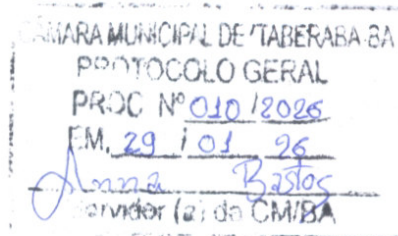 CÂMARA MUNICIPAL DE ITABERABA-BA
PROTOCOLO GERAL
PROC Nº 010 / 2026
EM, 29 / 01 26
Anna Bastos
Servidor (a) da CMI/BA